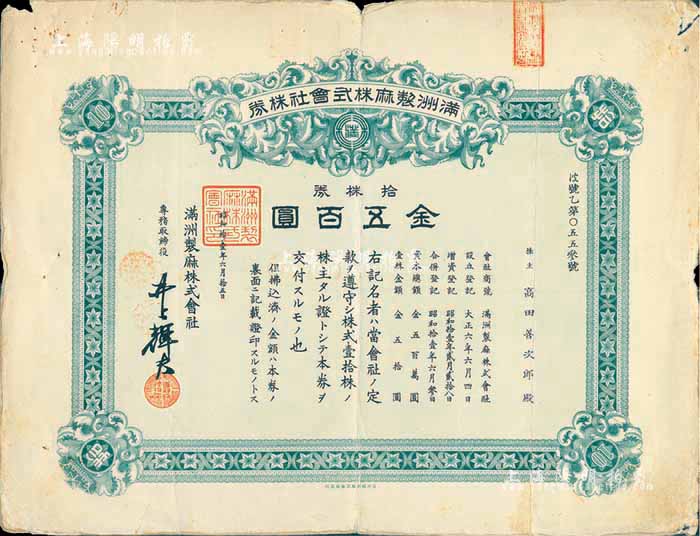 上海陽明拍賣
滿洲製麻株式會社株券
拾株券
金五百圓
改號乙第〇五五參號
株主 高田善次郎殿
會社商號 滿洲製麻株式會社
設立登記 大正六年六月四日
增資登記 昭和拾壹年貳月貳拾八日
合併登記 昭和拾壹年六月參日
資本總額 金五百萬圓
壹株金額 金五拾圓
右記名者ハ當會社ノ定
款ヲ遵守シ株式壹拾株ノ
株主タル證トシテ本券ヲ
交付スルモノ也
但拂込濟ノ金額ハ本券ノ
裏面ニ記載證印スルモノトス
昭和拾壹年六月拾五日
滿洲製麻株式會社
專務取締役
井上輝夫
滿洲製麻株式會社印